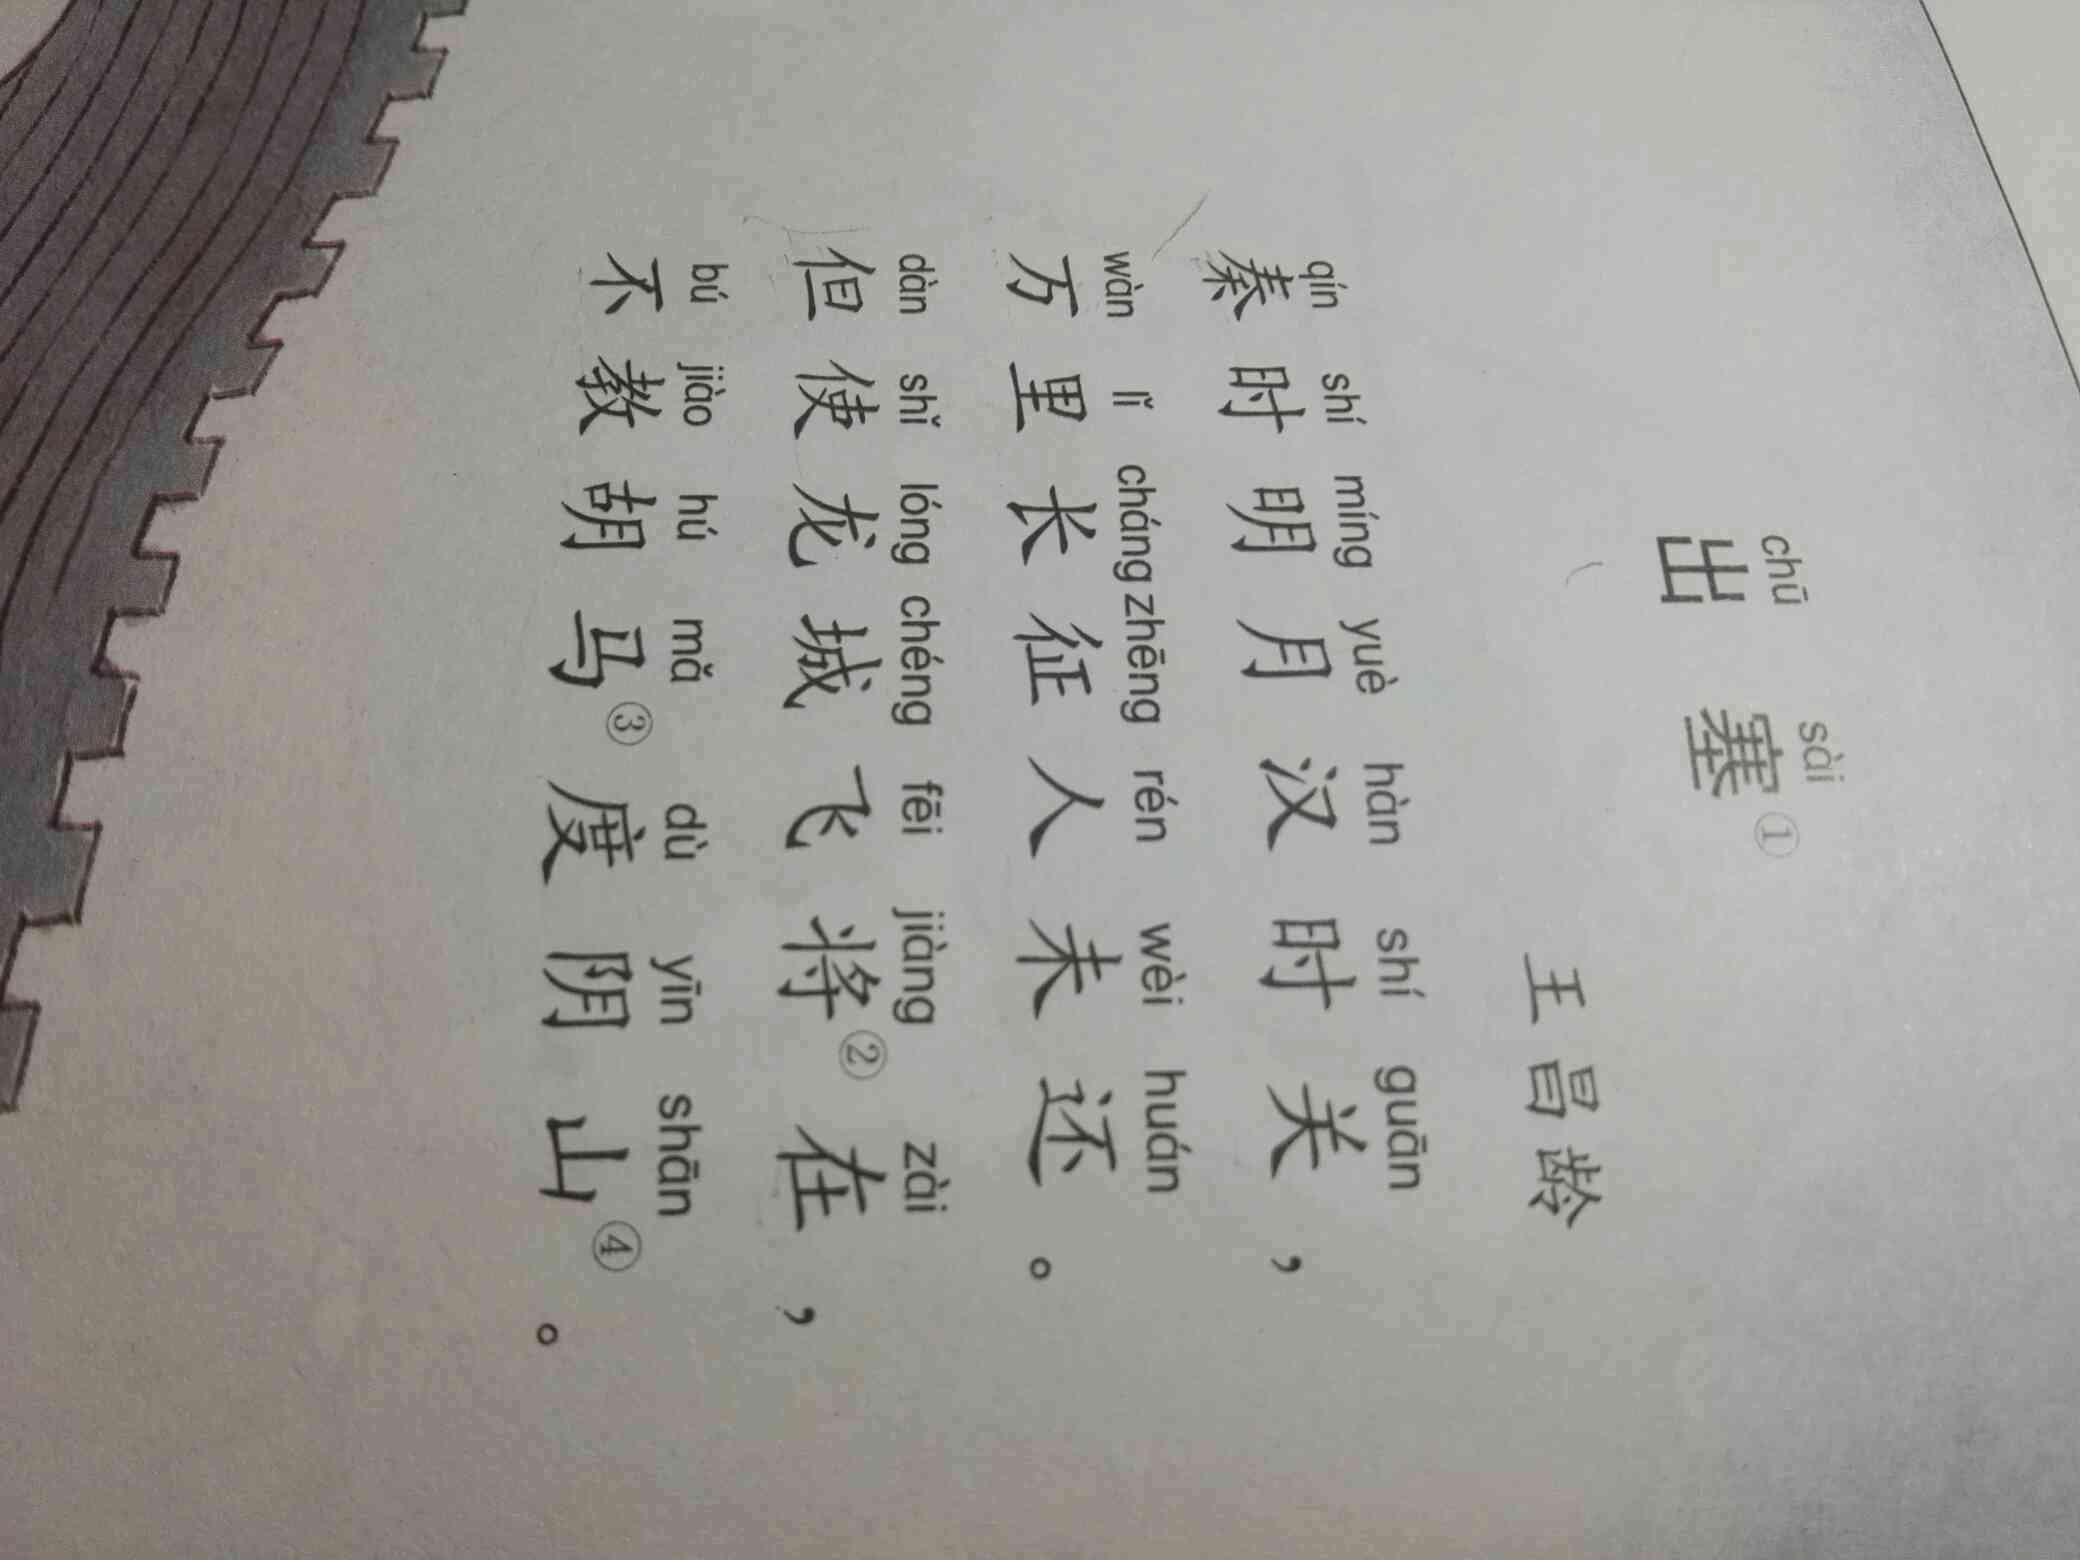 chū sài
出塞①
王昌龄
qín shí míng yuè hàn shí guān
秦时明月汉时关，
wàn lǐ cháng zhēng rén wèi huán
万里长征人未还。
dàn shǐ lóng chéng fēi jiàng zài
但使龙城飞将②在，
bú jiào hú mǎ dù yīn shān
不教胡马③度阴山④。